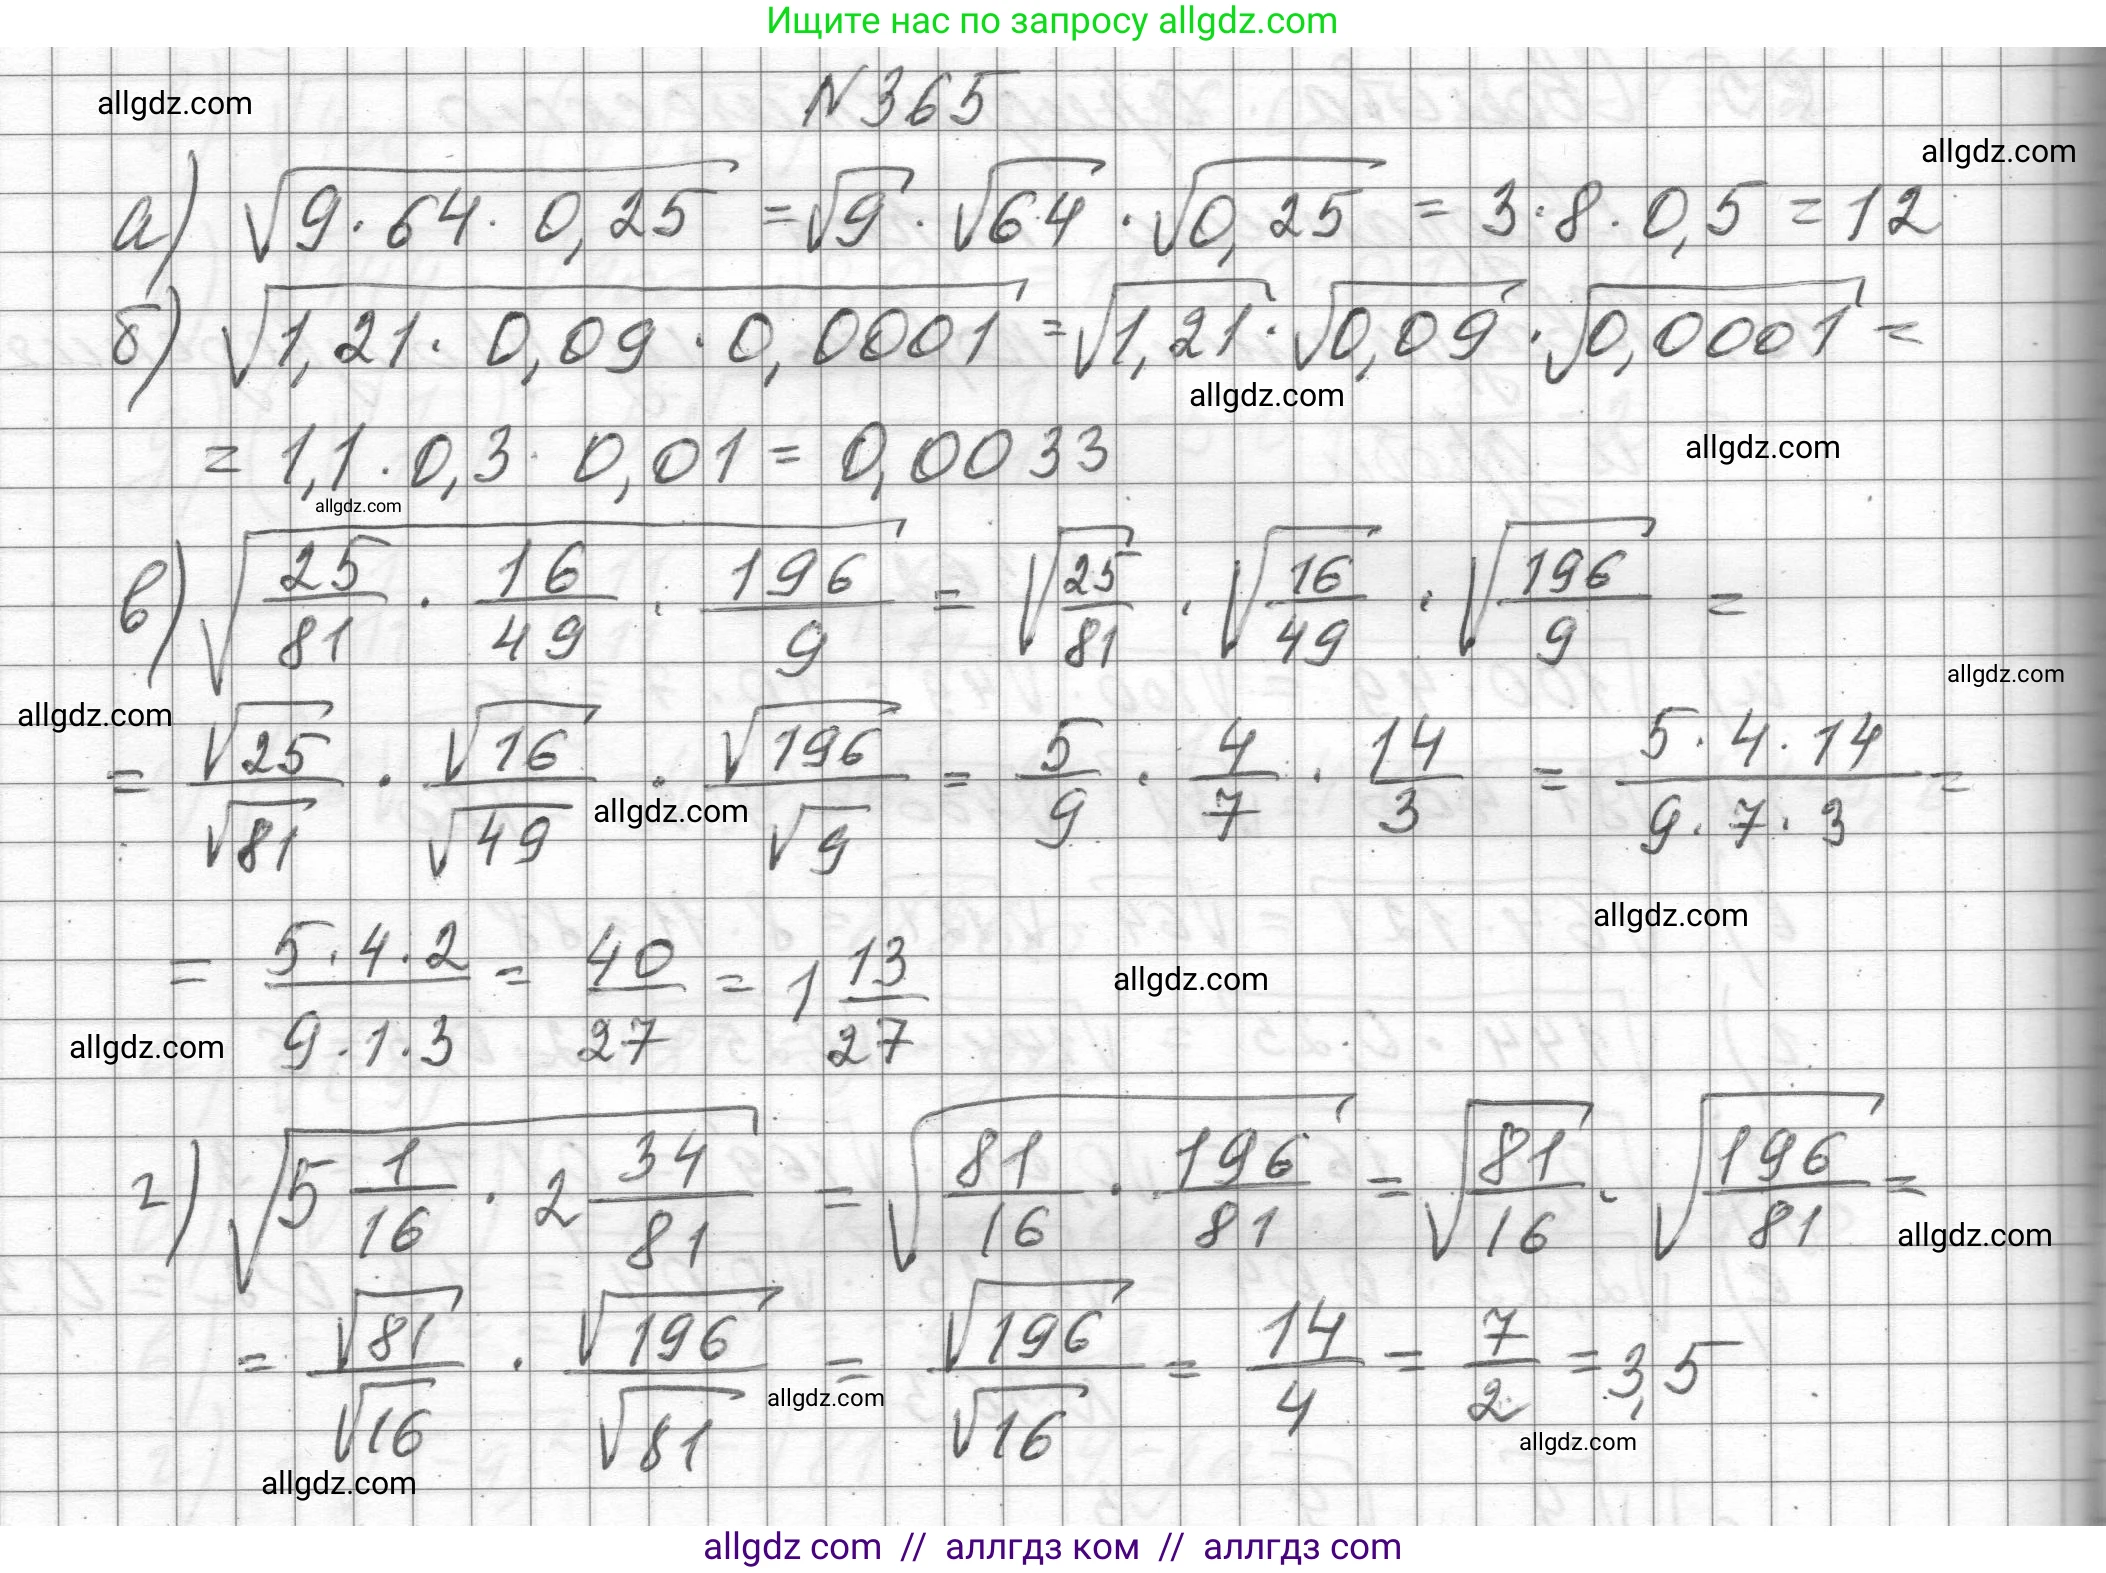 Ищите нас по запросу allgdz.com
N 365
allgdz.com
allgdz.com
а) √(9·64·0,25) = √9 · √64 · √0,25 = 3·8·0,5 = 12
б) √(1,21·0,09·0,0001) = √1,21 · √0,09 · √0,0001 =
allgdz.com
= 1,1·0,3·0,01 = 0,0033
allgdz.com
allgdz.com
в) √(25/81 · 16/49 · 196/9) = √(25/81) · √(16/49) · √(196/9) =
allgdz.com
allgdz.com
= √25/√81 · √16/√49 · √196/√9 = 5/9 · 4/7 · 14/3 = (5·4·14)/(9·7·3) =
allgdz.com
allgdz.com
= (5·4·2)/(9·1·3) = 40/27 = 1 13/27
allgdz.com
allgdz.com
г) √(5 1/16 · 2 34/81) = √(81/16 · 196/81) = √(81/16) · √(196/81) =
allgdz.com
= √81/√16 · √196/√81 = √196/√16 = 14/4 = 7/2 = 3,5
allgdz.com
allgdz.com
allgdz.com
allgdz com // аллгдз ком // аллгдз com